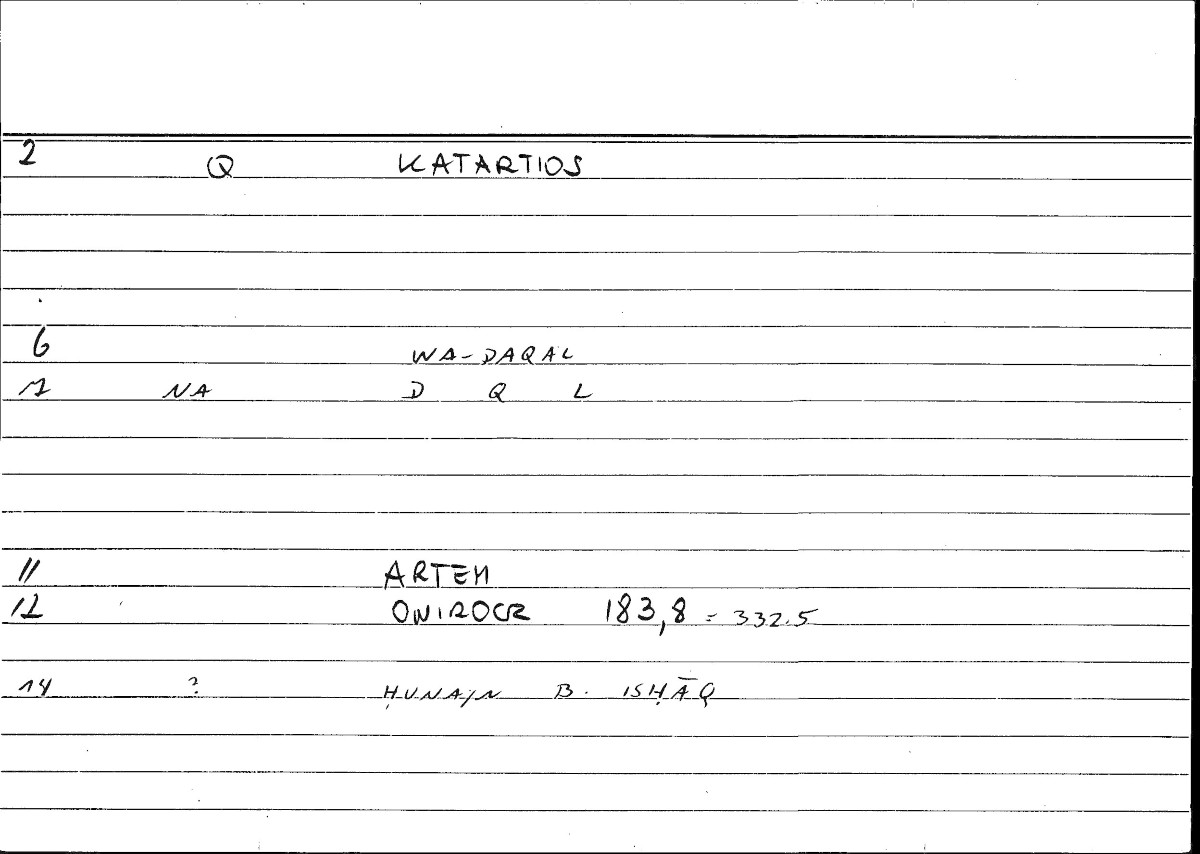 2 Q KATARTIOS
6 WA-DAQAL
7 NA D Q L
11 ARTEM
12 ONIROCR 183,8 = 332.5
14 ? ḤUNAJN B. ISḤĀQ